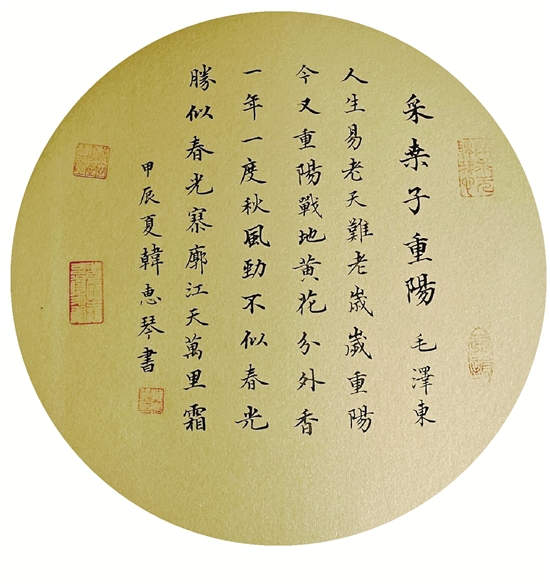 采桒子重陽 毛澤東
人生易老天難老歲歲重陽
今又重陽戰地黃花分外香
一年一度秋風勁不似春光
勝似春光寥廓江天萬里霜
甲辰夏韓惠琴書